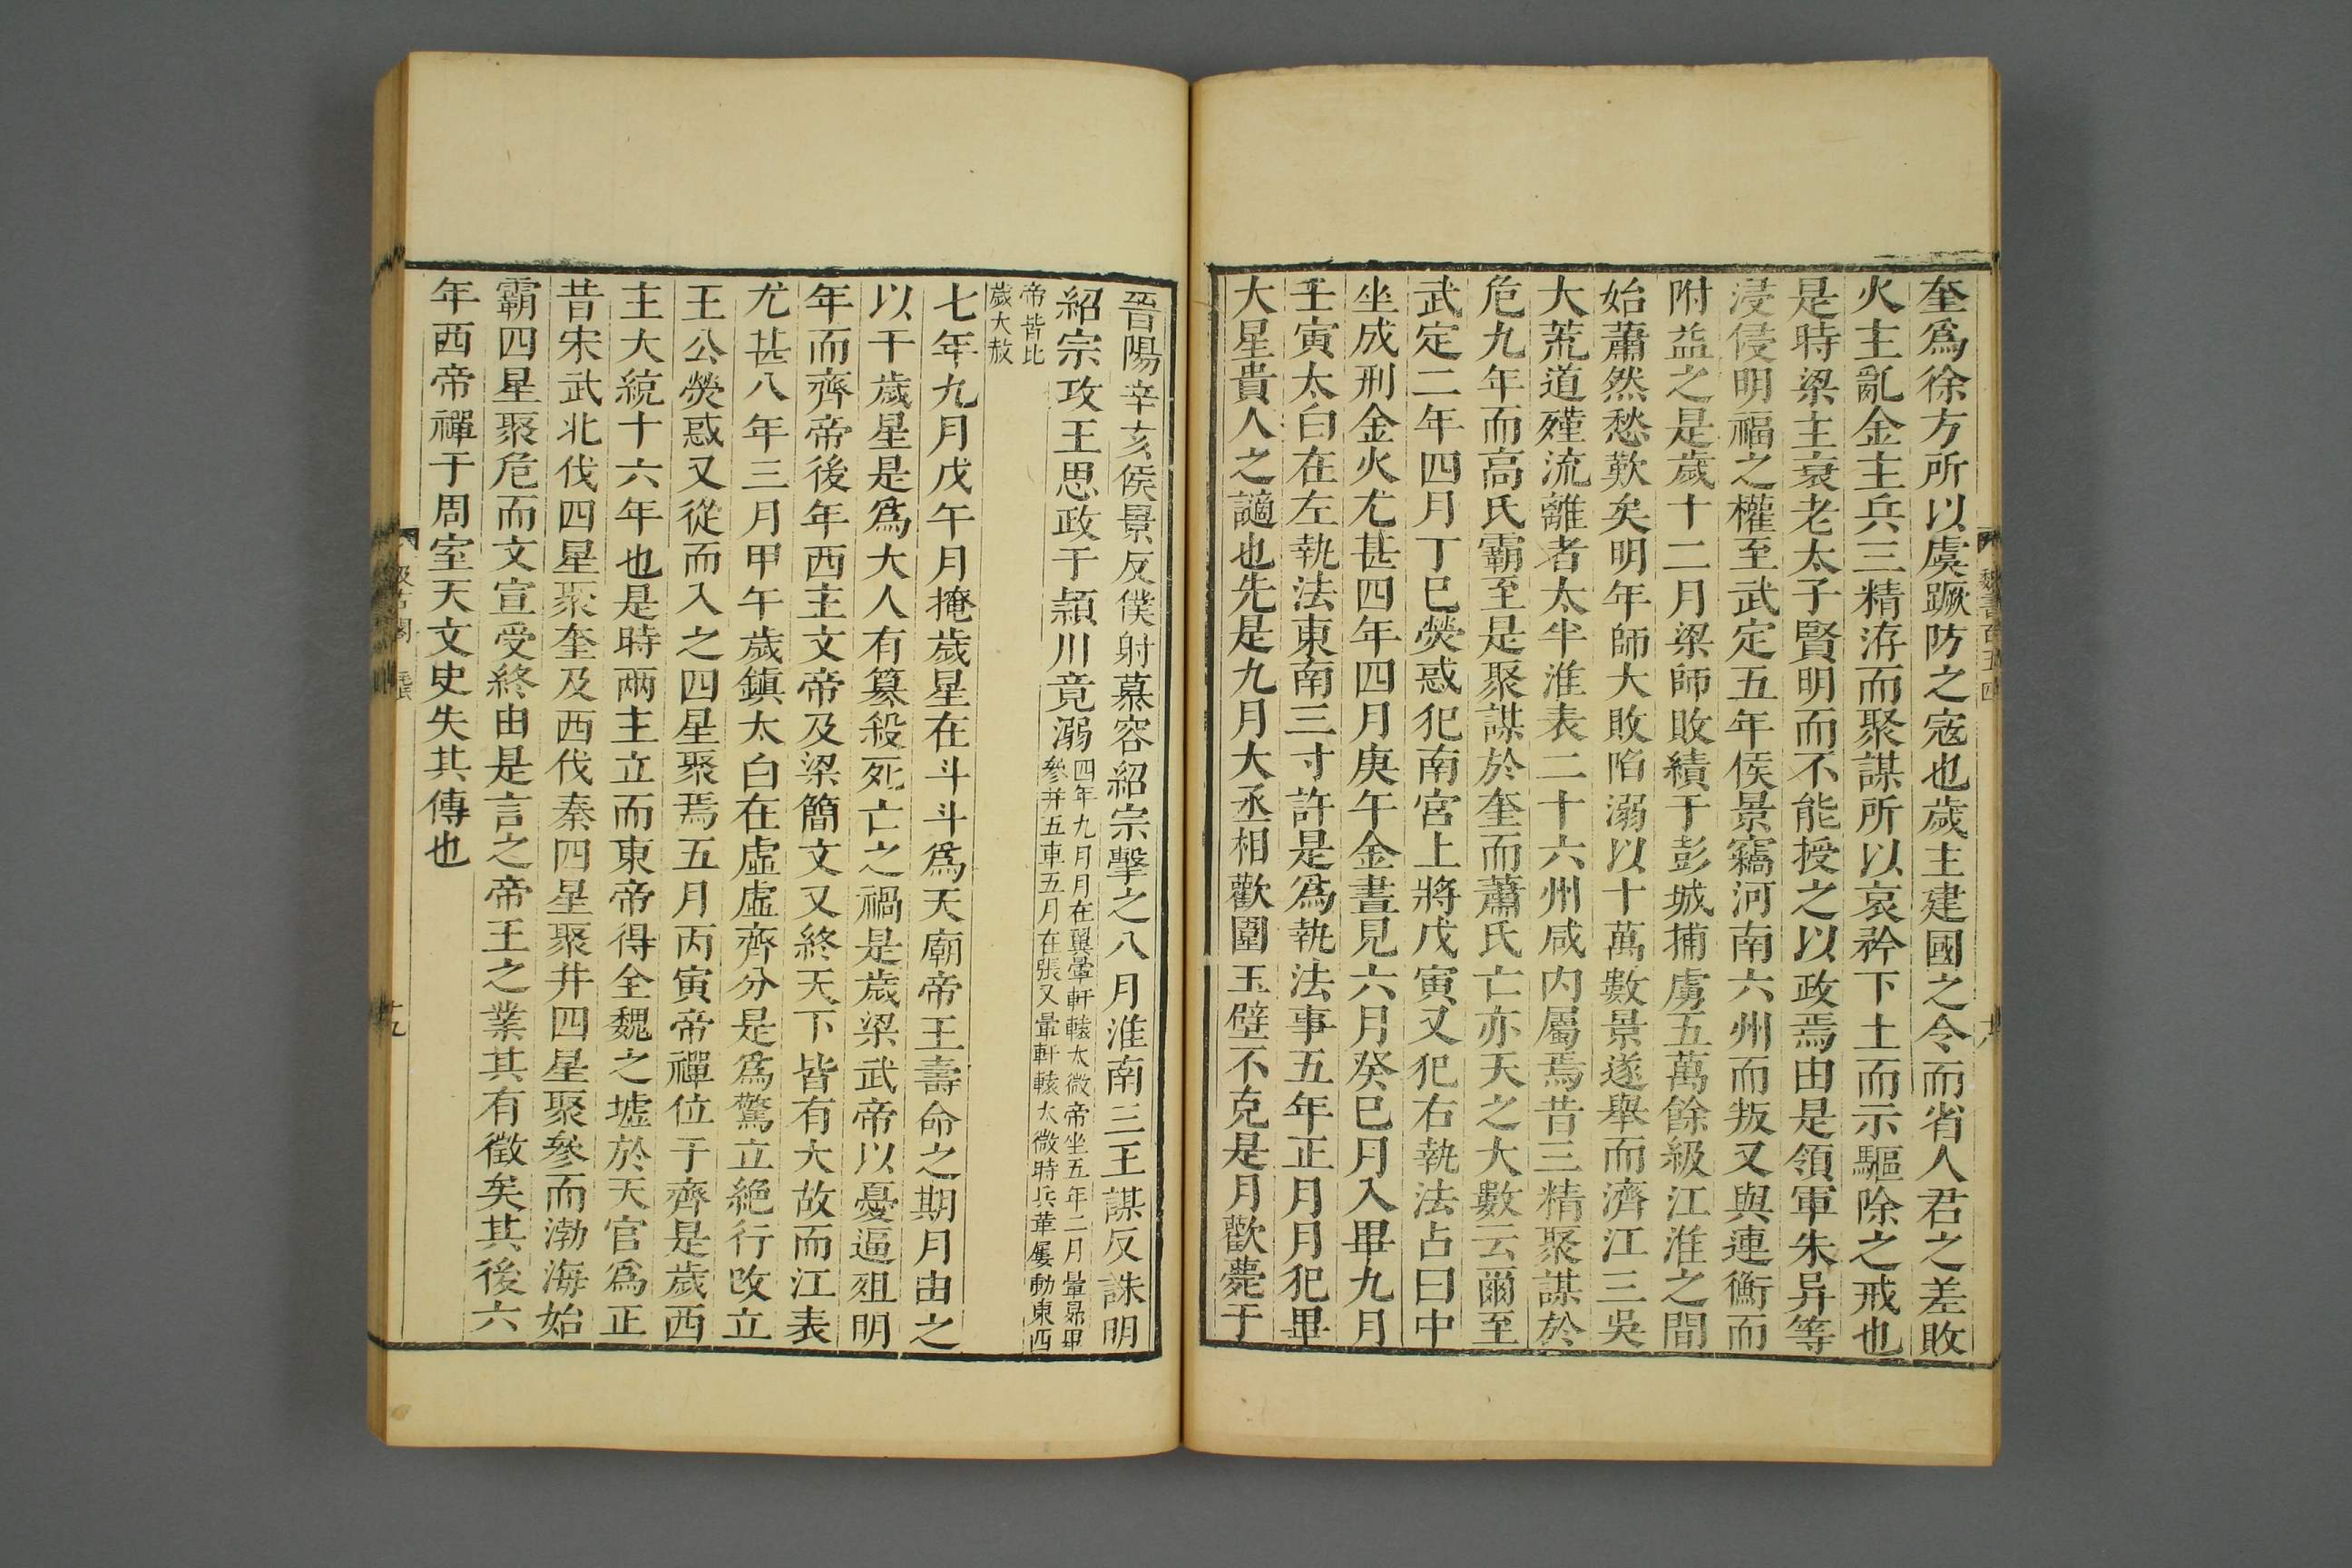 奎爲徐方所以虞蹶防之寇也歲主建國之令而省人君之差敗
火主亂金主兵三精洊而聚謀所以哀矜下土而示驅除之戒也
是時梁主衰老太子賢明而不能授之以政焉由是領軍朱异等
浸侵明福之權至武定五年侯景竊河南六州而叛又與連衡而
附益之是歲十二月梁師敗績于彭城捕虜五萬餘級江淮之間
始蕭然愁歎矣明年師大敗陷溺以十萬數景遂舉而濟江三吳
大荒道殣流離者太半淮表二十六州咸內屬焉昔三精聚謀於
危九年而高氏霸至是聚謀於奎而蕭氏亡亦天之大數云爾至
武定二年四月丁巳熒惑犯南宮上將戊寅又犯右執法占曰中
坐成刑金火尤甚四年四月庚午金晝見六月癸巳月入畢九月
壬寅太白在左執法東南三寸許是爲執法事五年正月月犯畢
大星貴人之讁也先是九月大丞相歡圍玉壁不克是月歡薨于
魏書百五四
晉陽辛亥侯景反僕射慕容紹宗擊之八月淮南三王謀反誅明
紹宗攻王思政于潁川竟溺
四年九月月在翼暈軒轅太微帝坐五年二月暈昴畢
參井五車五月在張又暈軒轅太微時兵革屢動東西
帝皆比
歲大赦
七年九月戊午月掩歲星在斗斗爲天廟帝王壽命之期月由之
以干歲星是爲大人有篡殺死亡之禍是歲梁武帝以憂逼殂明
年而齊帝後年西主文帝及梁簡文又終天下皆有大故而江表
尤甚八年三月甲午歲鎮太白在虛虛齊分是爲驚立絕行改立
王公熒惑又從而入之四星聚焉五月丙寅帝禪位于齊是歲西
主大統十六年也是時兩主立而東帝得全魏之墟於天官爲正
昔宋武北伐四星聚奎及西伐秦四星聚井四星聚參而渤海始
霸四星聚危而文宣受終由是言之帝王之業其有徵矣其後六
年西帝禪于周室天文史失其傳也
十九